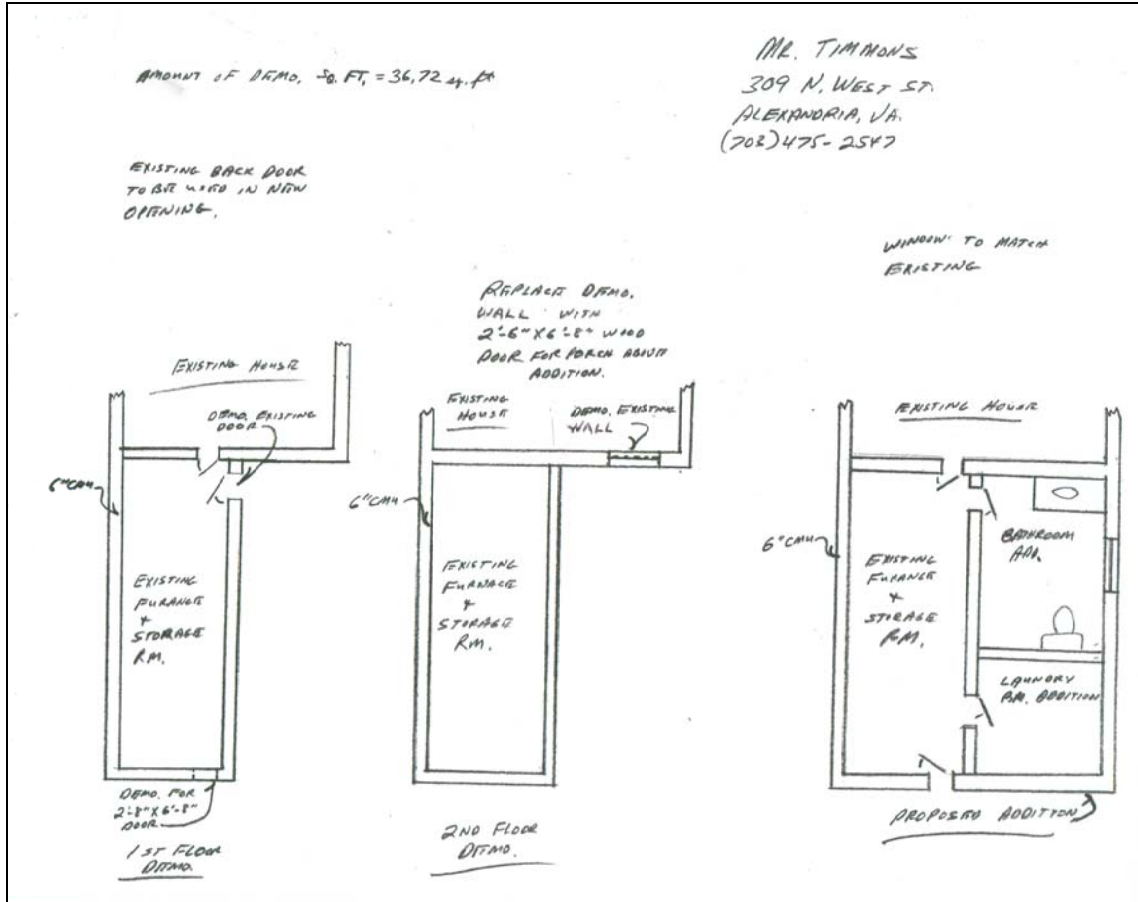 AMOUNT OF DEMO. SQ. FT. = 36.72 sq. ft
MR. TIMMONS
309 N. WEST ST.
ALEXANDRIA, VA.
(703) 475-2547
EXISTING BACK DOOR
TO BE USED IN NEW
OPENING.
WINDOW TO MATCH
EXISTING
REPLACE DEMO.
WALL WITH
2'-6" X 6'-8" WOOD
DOOR FOR PORCH ABOUT
ADDITION.
EXISTING HOUSE
DEMO. EXISTING
DOOR
6" CMU
EXISTING
FURANCE
&
STORAGE
RM.
DEMO. FOR
2'-8" X 6'-8"
DOOR
1 ST FLOOR
DEMO.
EXISTING
HOUSE
DEMO. EXISTING
WALL
6" CMU
EXISTING
FURNACE
&
STORAGE
RM.
2ND FLOOR
DEMO.
EXISTING HOUSE
6" CMU
EXISTING
FURANCE
&
STORAGE
RM.
BATHROOM
ADD.
LAUNDRY
RM. ADDITION
PROPOSED ADDITION